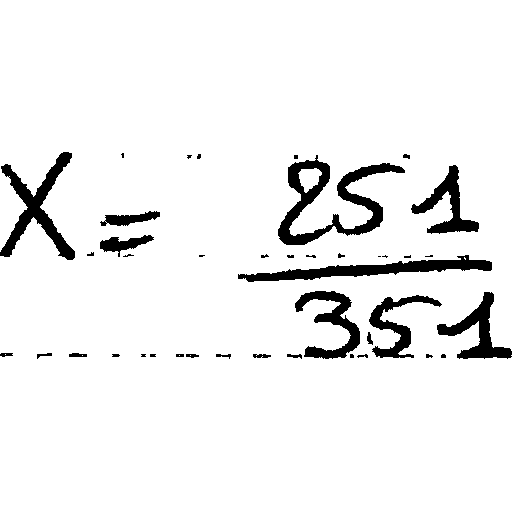 X = 851/351